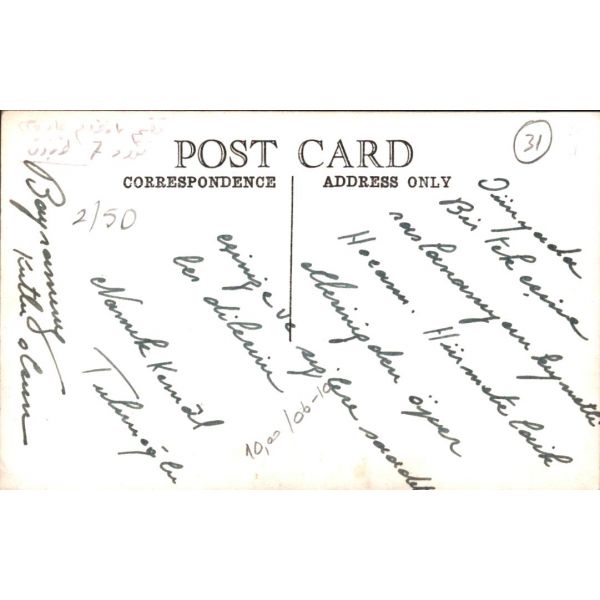 POST CARD
CORRESPONDENCE
ADDRESS ONLY
31
2/50
Dünyada
Bir tek eşine
raslanamıyan kıymetli
Hocam. Hürmete laik
ellerinizden öper
eşinize ve
saadet
ler dilerim
Namık Kemâl
Bayramınız
Kutlu olsun
10,00/06-10